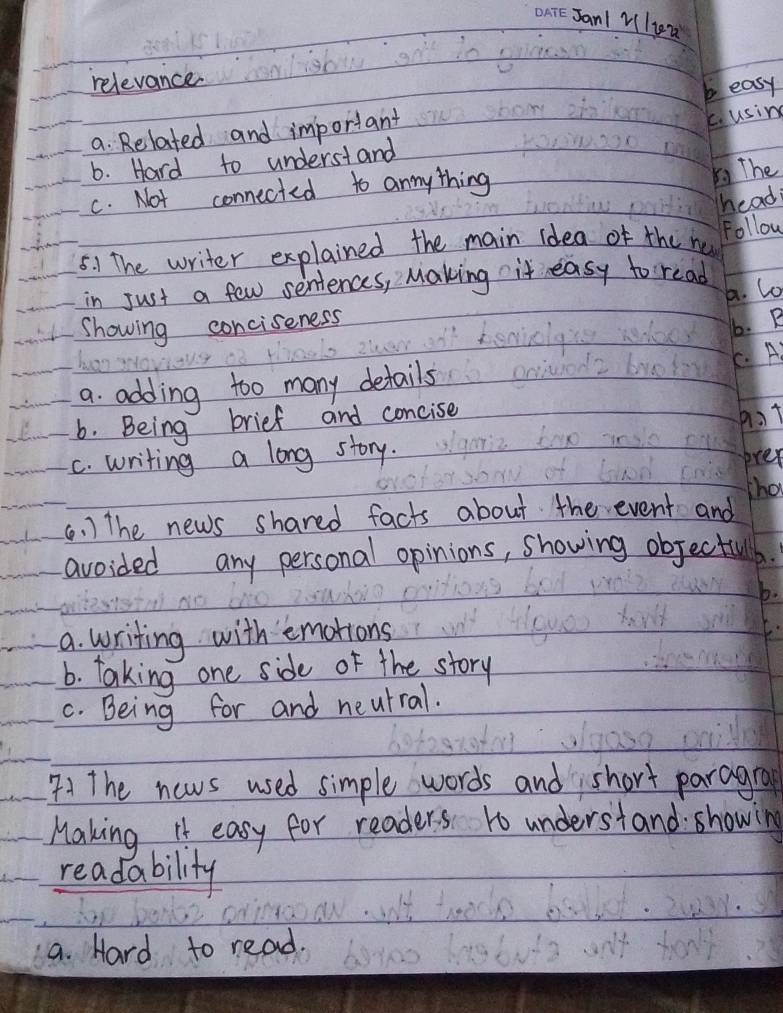 DATE Jan 21
relevance.
a. Related and important
b. Hard to understand
c. Not connected to annything
5.) The writer explained the main idea of the
in just a few sentences, Making it easy to read
Showing conciseness
a. adding too many details
b. Being brief and concise
c. writing a long story.
6.) The news shared facts about the event and
avoided any personal opinions, Showing
a. writing with emotions
b. Taking one side of the story
c. Being for and neutral.
7.) The news used simple words and short
Making it easy for readers to understand. showing
readability
a. Hard to read.
b easy
c. using
The
Follow
a.
b.
c.